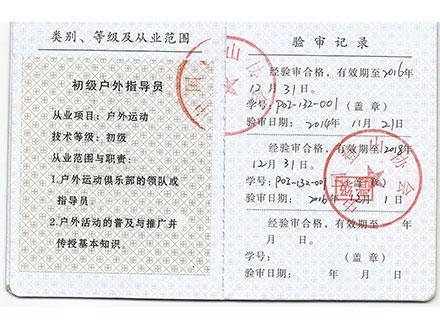 类别、等级及从业范围
初级户外指导员
从业项目：户外运动
技术等级：初级
从业范围与职责：
1.户外运动俱乐部的领队或
指导员
2.户外活动的普及与推广并
传授基本知识。
验审记录
经验审合格，有效期至2016年
12月31日。
学号：P03-132-001（盖章）
验审日期：2014年11月2日
经验审合格，有效期至2018年
12月31日。
学号：P03-132-001（盖章）
验审日期：2016年12月1日
经验审合格，有效期至 年
月 日。
学号： （盖章）
验审日期： 年 月 日